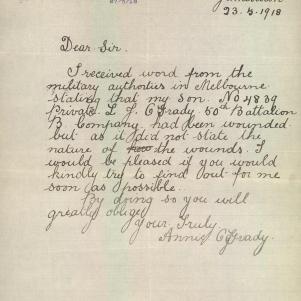 23.5.1918
Dear Sir.
I received word from the
military authorities in Melbourne
stating that my son. No 4839
Private L. J. O'Grady 50th Battalion
B Company had been wounded
but as it did not state the
nature of the wounds. I
would be pleased if you would
kindly try to find out for me
soon as possible.
By doing so you will
greatly oblige
Your Truly
Annie O'Grady.